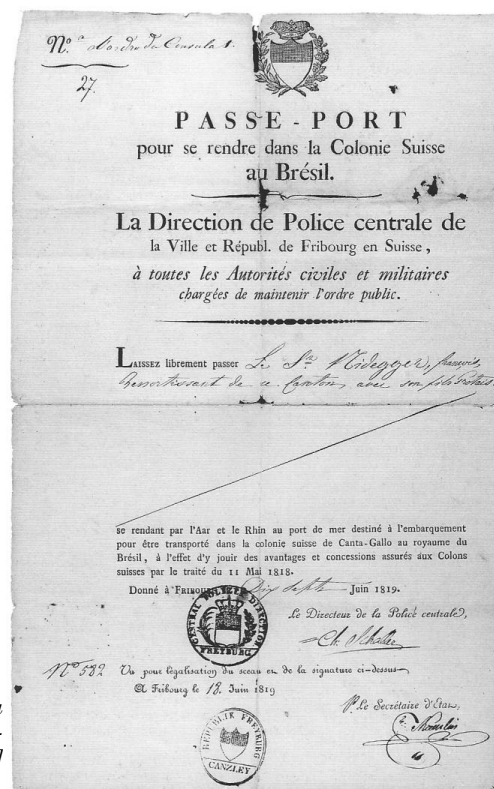 N.º d'ordre du Consulat.
27.
PASSE-PORT
pour se rendre dans la Colonie Suisse
au Brésil.
La Direction de Police centrale de
la Ville et Républ. de Fribourg en Suisse,
à toutes les Autorités civiles et militaires
chargées de maintenir l'ordre public.
LAISSEZ librement passer Le Sr. Nidegger, françois,
Ressortissant de ce Canton, avec son fils Protais
se rendant par l'Aar et le Rhin au port de mer destiné à l'embarquement
pour être transporté dans la colonie suisse de Canta-Gallo au royaume du
Brésil, à l'effet d'y jouir des avantages et concessions assurés aux Colons
suisses par le traité du 11 Mai 1818.
Donné à FRIBOURG Dix sept Juin 1819.
Le Directeur de la Police centrale,
CENTRAL POLIZEY DIRECTION
FREYBURG
Ch. Schaller
Nº 582 Vu pour légalisation du sceau et de la signature ci-dessus
A Fribourg le 18. Juin 1819
Pr Le Secrétaire d'Etat,
REPUBLIK FREYBURG
CANZLEY